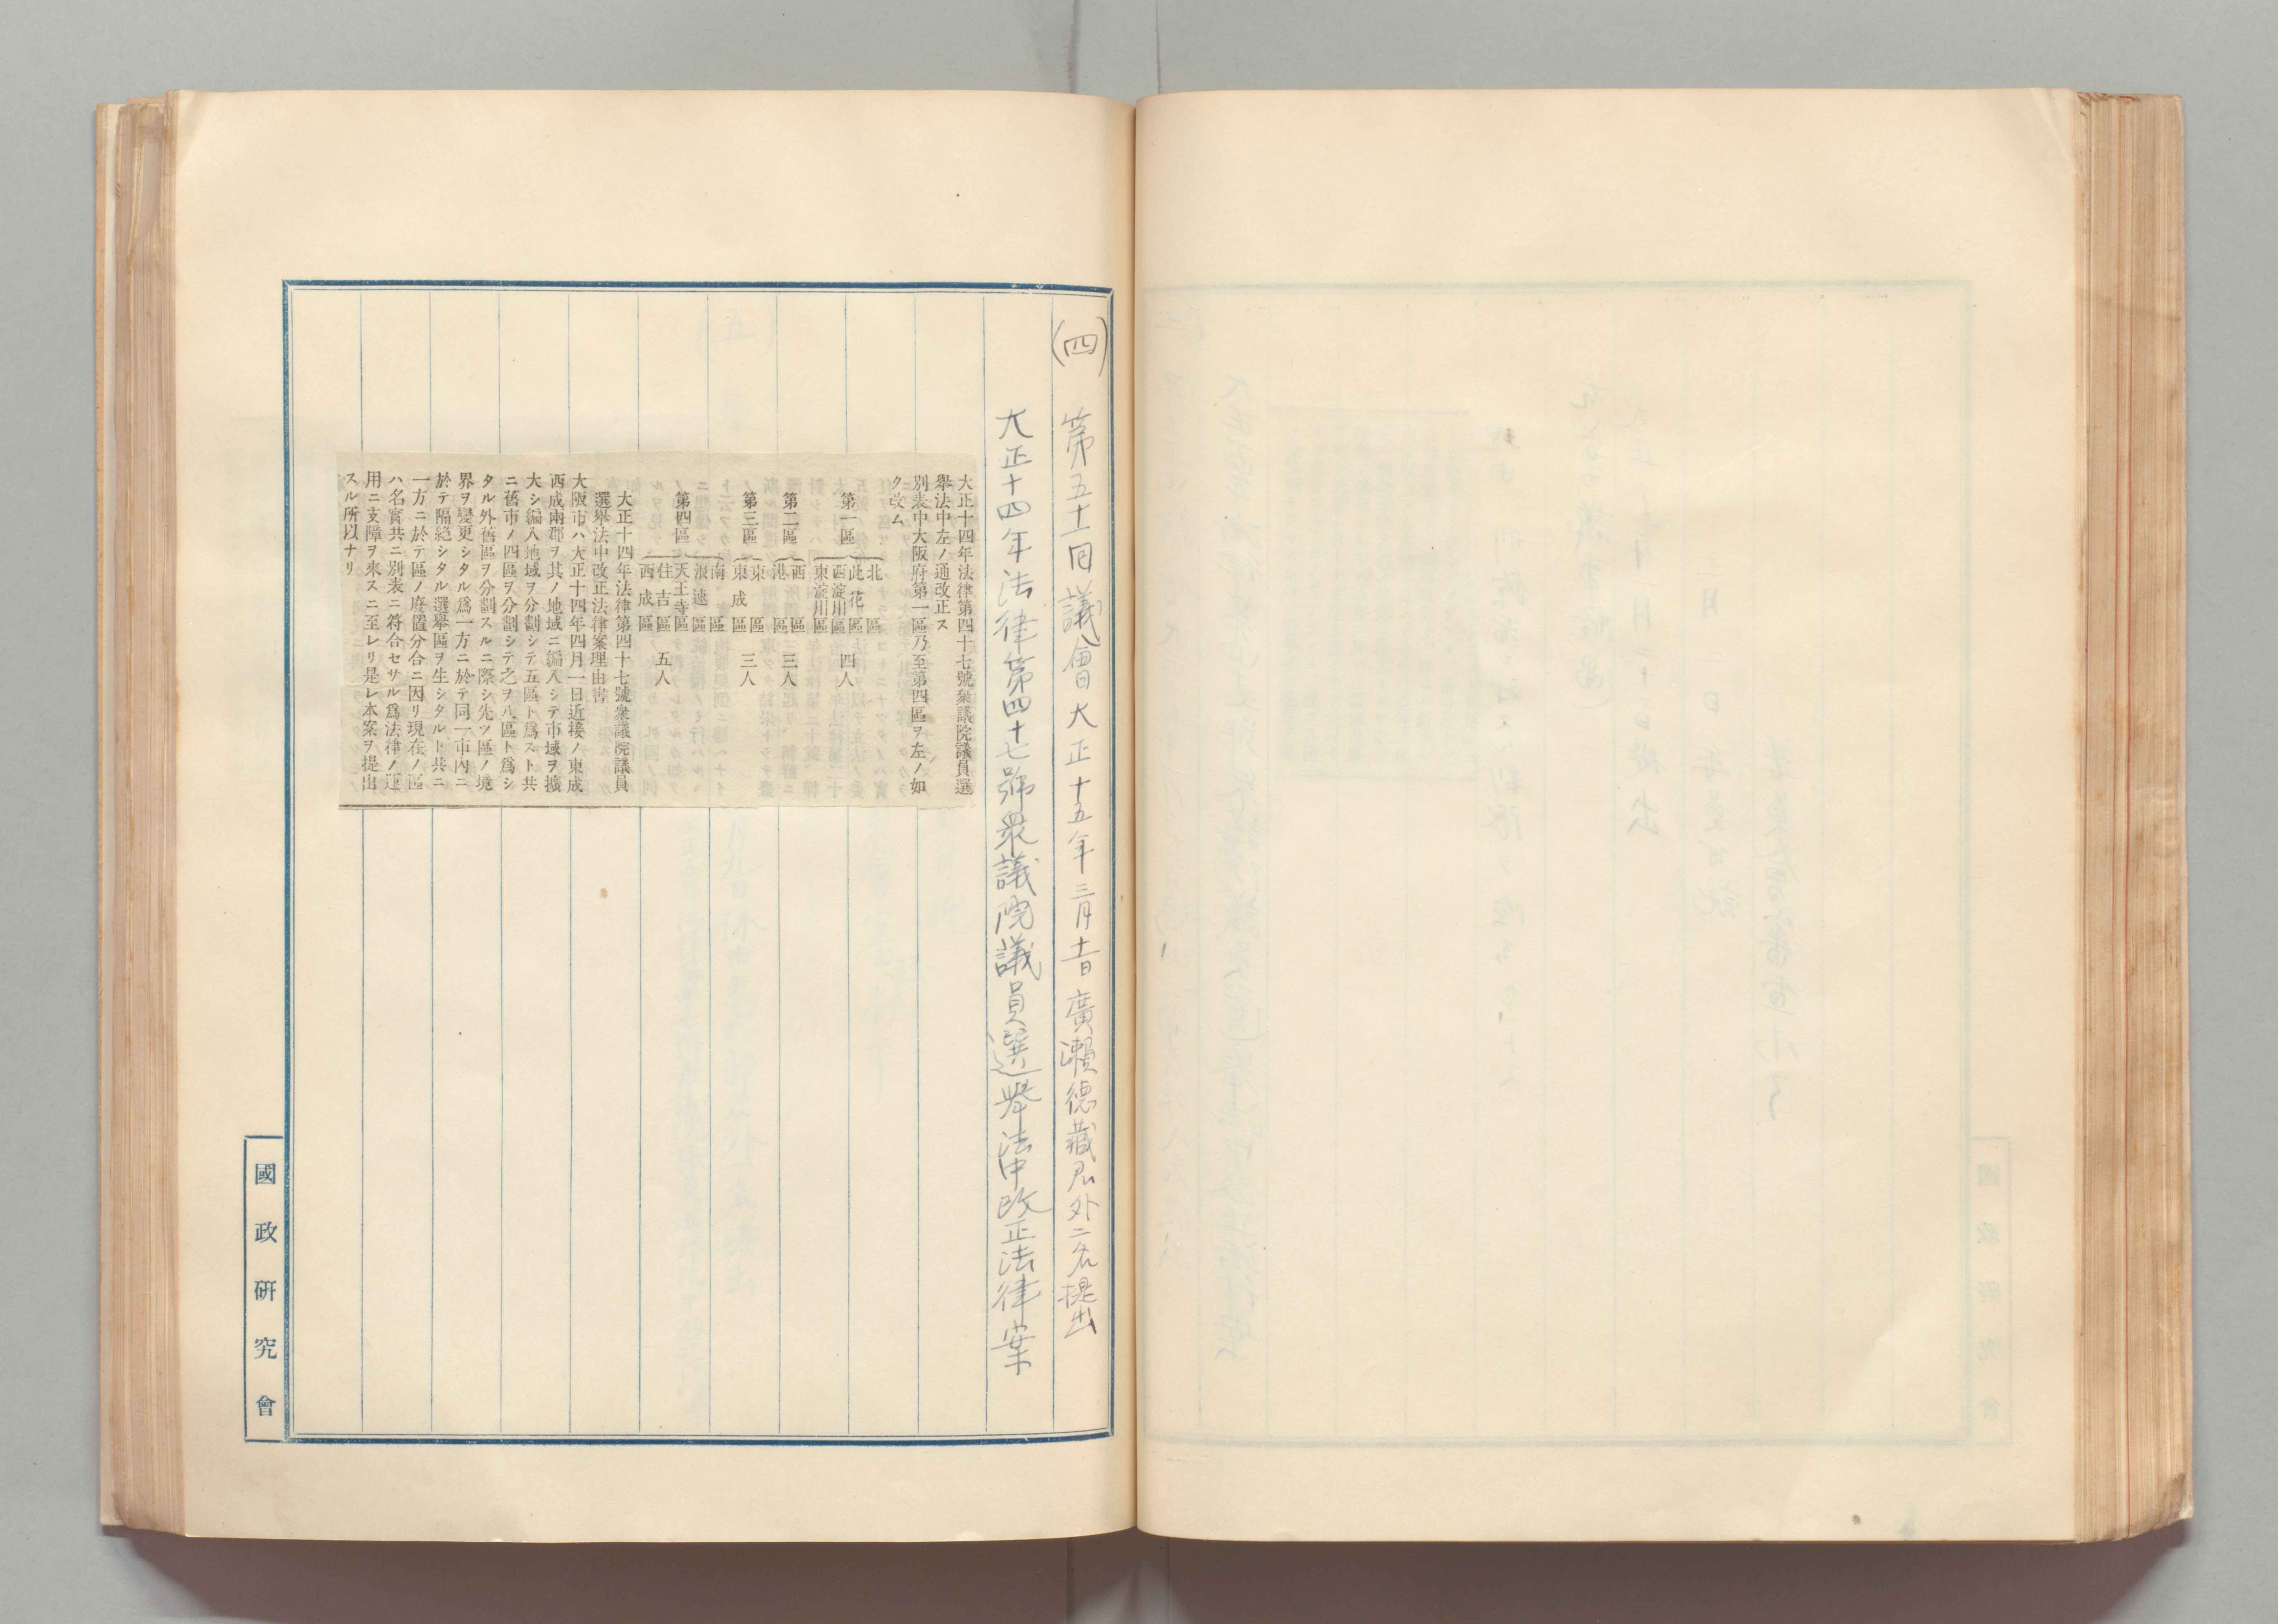 (四)　第五十一回議會大正十五年三月十一日廣瀨德藏君外二名提出
大正十四年法律第四十七號衆議院議員選擧法中改正法律案
大正十四年法律第四十七號衆議院議員選
擧法中左ノ通改正ス
別表中大阪府第一區乃至第四區ヲ左ノ如
ク改ム
第一區 北區 此花區 西淀川區 東淀川區 四人
第二區 西區 港區 三人
第三區 東區 東成區 三人
第四區 南區 浪速區 天王寺區 住吉區 西成區 五人
大正十四年法律第四十七號衆議院議員
選擧法中改正法律案理由書
大阪市ハ大正十四年四月一日近接ノ東成
西成兩郡ヲ其ノ地域ニ編入シテ市域ヲ擴
大シ編入地域ヲ分劃シテ五區ト爲スト共
ニ舊市ノ四區ヲ分劃シテ之ヲ八區ト爲シ
タル外舊區ヲ分劃スルニ際シ先ツ區ノ境
界ヲ變更シタル爲一方ニ於テ同一市內ニ
於テ隔絕シタル選擧區ヲ生シタルト共ニ
一方ニ於テ區ノ廢置分合ニ因リ現在ノ區
ハ名實共ニ別表ニ符合セサル爲法律ノ運
用ニ支障ヲ來スニ至レリ是レ本案ヲ提出
スル所以ナリ
國政硏究會